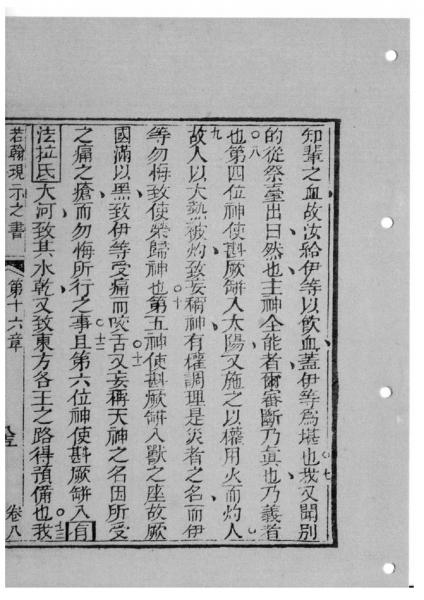 知輩之血故汝給伊等以飲血蓋伊等為堪也○七我又聞別
的從祭臺出曰然也主神全能者爾審斷乃真也乃義者
○八也第四位神使斟厥缾入太陽又施之以權用火而灼人
○九故人以大熱被灼致妄稱神有權調理是災者之名而伊
等勿悔致使榮歸神也○十第五神使斟厥缾入獸之座故厥
國滿以黑致伊等受痛而咬舌○十一又妄稱天神之名因所受
之痛之瘡而勿悔所行之事○十二且第六位神使斟厥缾入有
法拉氏大河致其水乾又致東方各王之路得預備也○十三我
若翰現示之書 第十六章 卷八